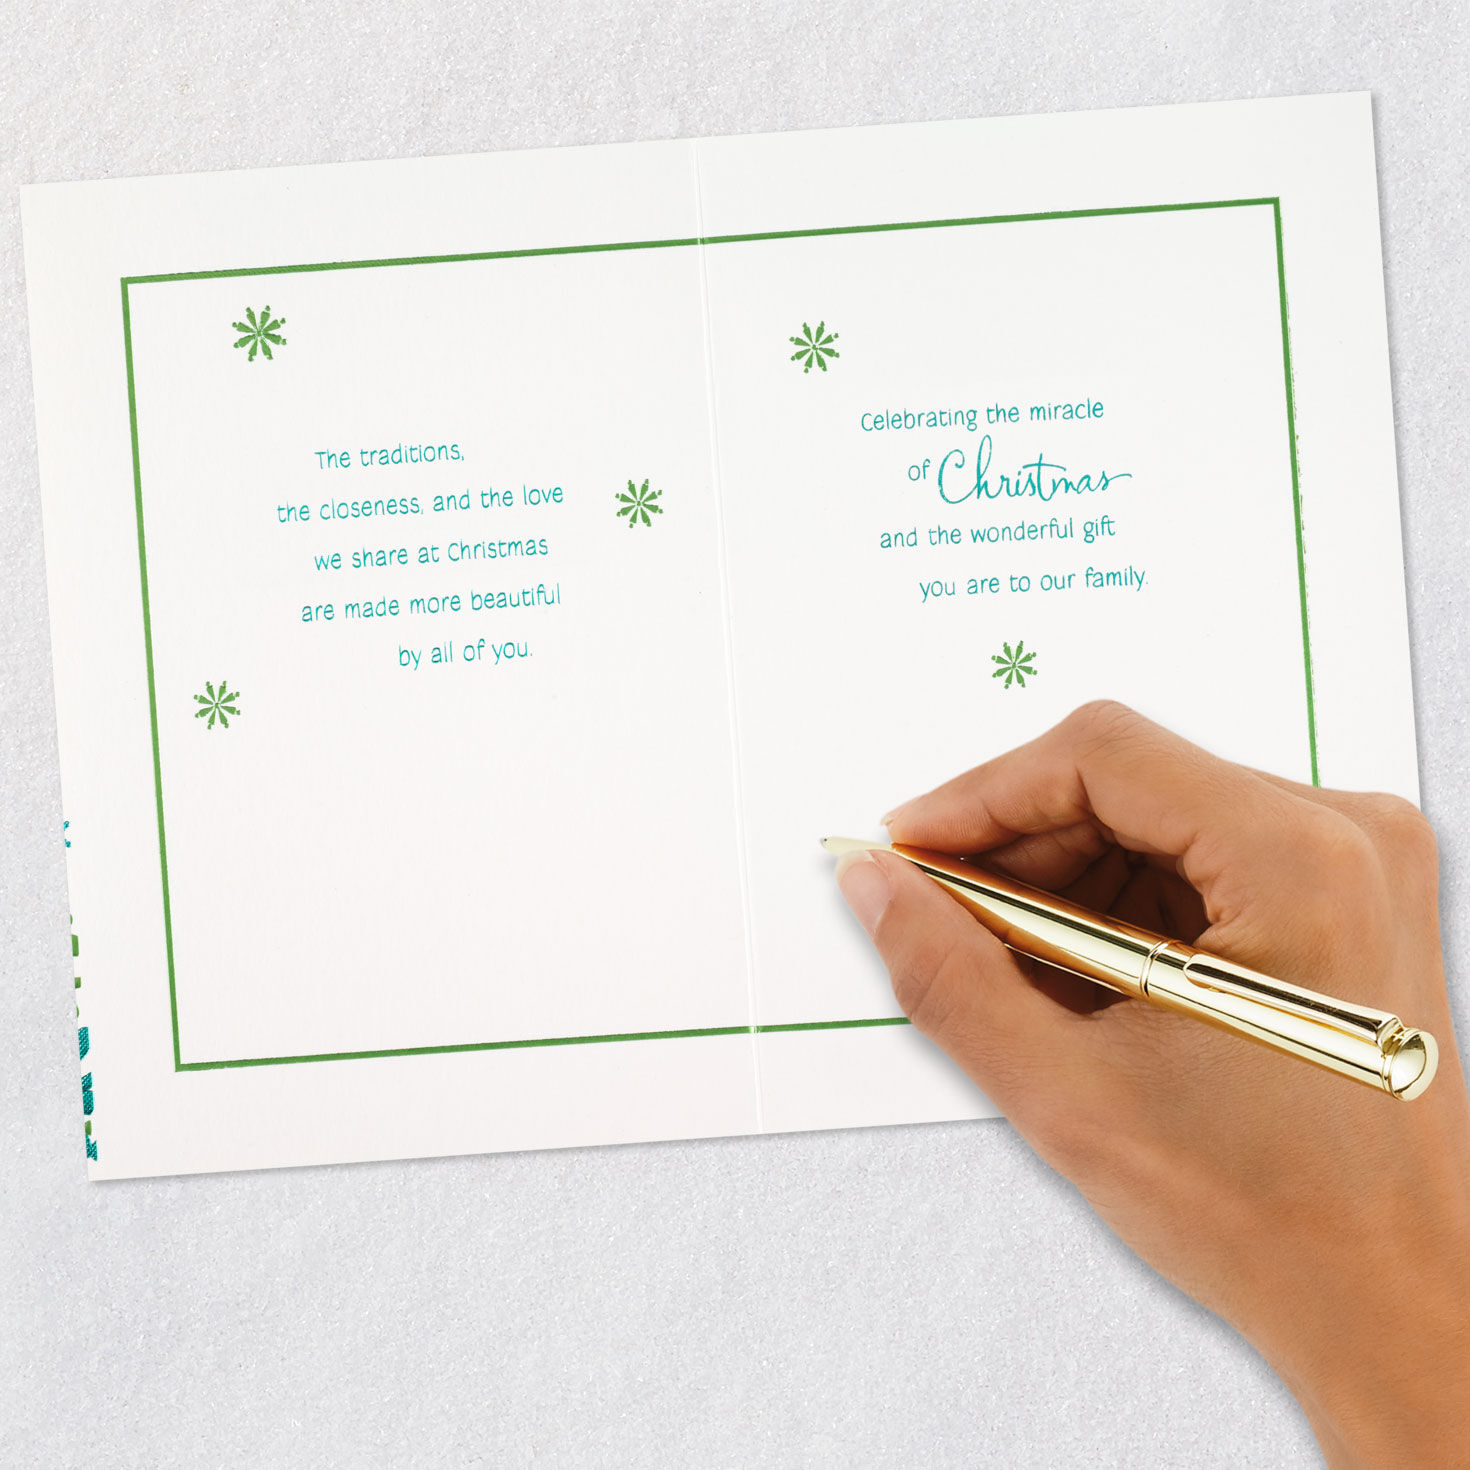 The traditions,
the closeness, and the love
we share at Christmas
are made more beautiful
by all of you.
Celebrating the miracle
of Christmas
and the wonderful gift
you are to our family.